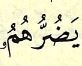 يَضُرُّهُمُۥ